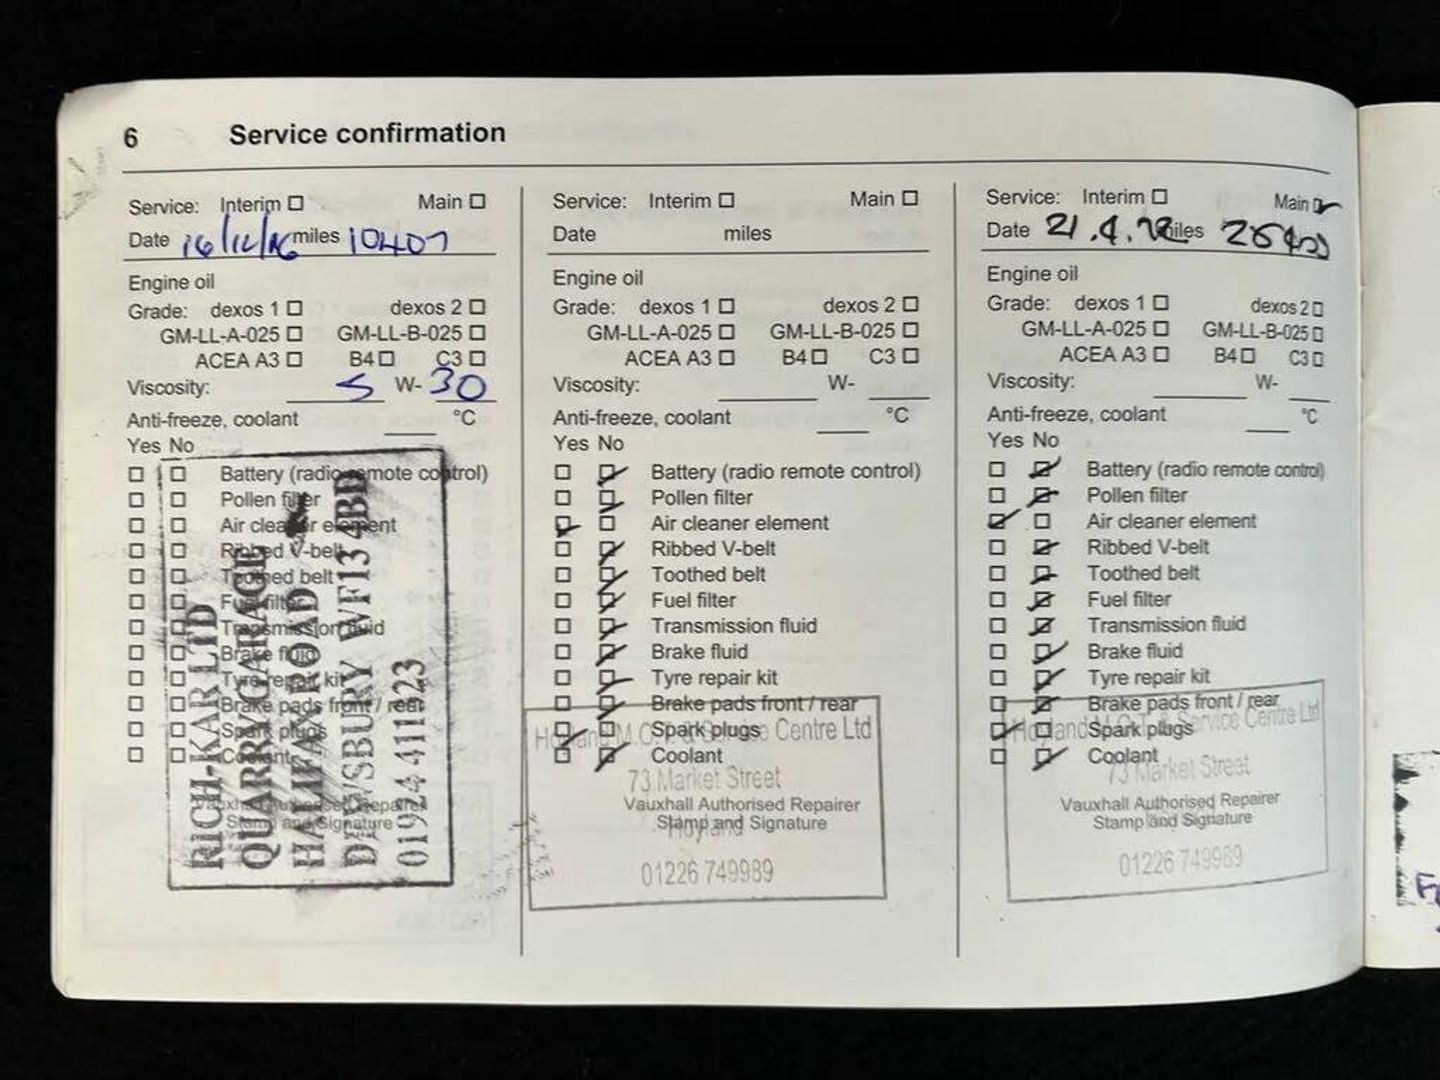 6 Service confirmation
Service: Interim Main
Date 16/12/16 miles 10407
Engine oil
Grade: dexos 1 dexos 2
GM-LL-A-025 GM-LL-B-025
ACEA A3 B4 C3
Viscosity: 5 W- 30
Anti-freeze, coolant °C
Yes No
Battery (radio remote control)
Pollen filter
Air cleaner element
Ribbed V-belt
Toothed belt
Fuel filter
Transmission fluid
Brake fluid
Tyre repair kit
Brake pads front / rear
Spark plugs
Coolant
Vauxhall Authorised Repairer
Stamp and Signature
RICH-KAR LTD
QUARRY GARAGE
HALIFAX ROAD
DEWSBURY WF13 4BD
01924 411123
Service: Interim Main
Date miles
Engine oil
Grade: dexos 1 dexos 2
GM-LL-A-025 GM-LL-B-025
ACEA A3 B4 C3
Viscosity: W-
Anti-freeze, coolant °C
Yes No
Battery (radio remote control)
Pollen filter
Air cleaner element
Ribbed V-belt
Toothed belt
Fuel filter
Transmission fluid
Brake fluid
Tyre repair kit
Brake pads front / rear
Spark plugs
Coolant
Hoyland M.O.T. & Service Centre Ltd
73 Market Street
Vauxhall Authorised Repairer
Stamp and Signature
Hoyland
01226 749989
Service: Interim Main
Date 21.4. miles
Engine oil
Grade: dexos 1 dexos 2
GM-LL-A-025 GM-LL-B-025
ACEA A3 B4 C3
Viscosity: W-
Anti-freeze, coolant °C
Yes No
Battery (radio remote control)
Pollen filter
Air cleaner element
Ribbed V-belt
Toothed belt
Fuel filter
Transmission fluid
Brake fluid
Tyre repair kit
Brake pads front / rear
Spark plugs
Coolant
Hoyland M.O.T. & Service Centre Ltd
73 Market Street
Vauxhall Authorised Repairer
Stamp and Signature
01226 749989